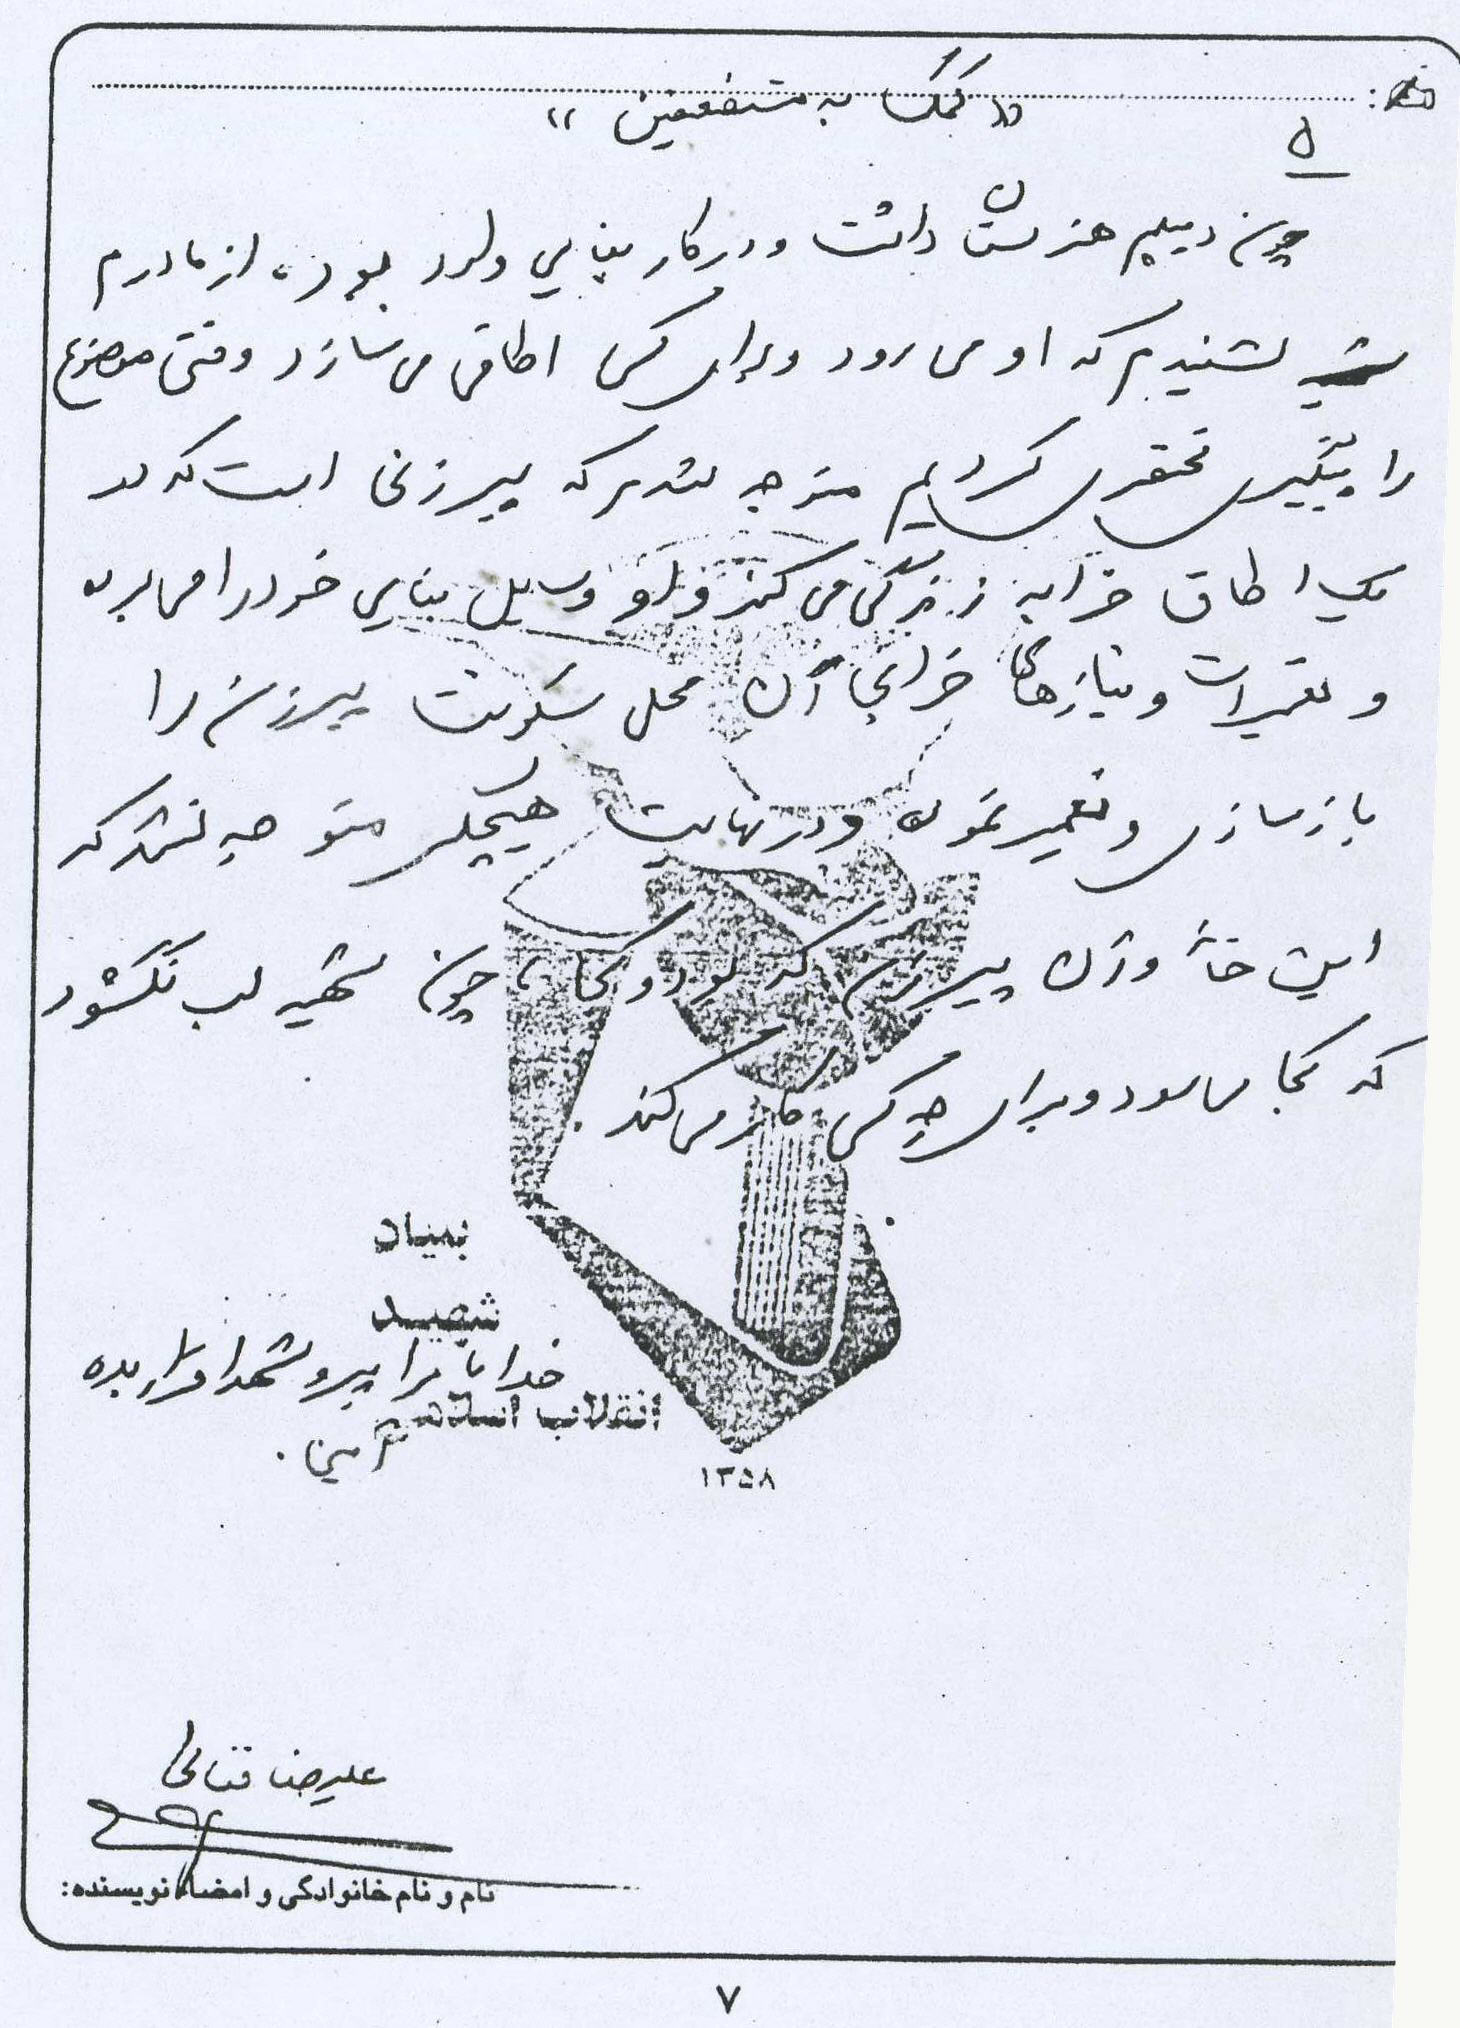 « کمک به مستضعفین »
۵
چون دیپلم هنرستان داشت و در کار بنایی وارد بود، از مادرم
شنیدم که او می رود و برای کسی اطاقی می سازد وقتی موضوع
را پیگیری مختصری کردیم متوجه شدیم که پیرزنی است که در
یک اطاق خرابه زندگی می کند و او وسایل بنایی خود را می برده
و تعمیرات و نیازهای خرابی آن محل سکونت پیرزن را
بازسازی و تعمیر نموده و در نهایت هیچکس متوجه نشد که
این خانه و آن پیرزن که بود و کجا، چون شهید لب نگشود
که کجا می رود و برای چه کسی کار می کند.
بنیاد
شهید
خدایا مرا پیرو شهدا قرار بده
انقلاب اسلامی
آمین.
۱۳۵۸
علیرضا
نام و نام خانوادگی و امضاء نویسنده:
۷